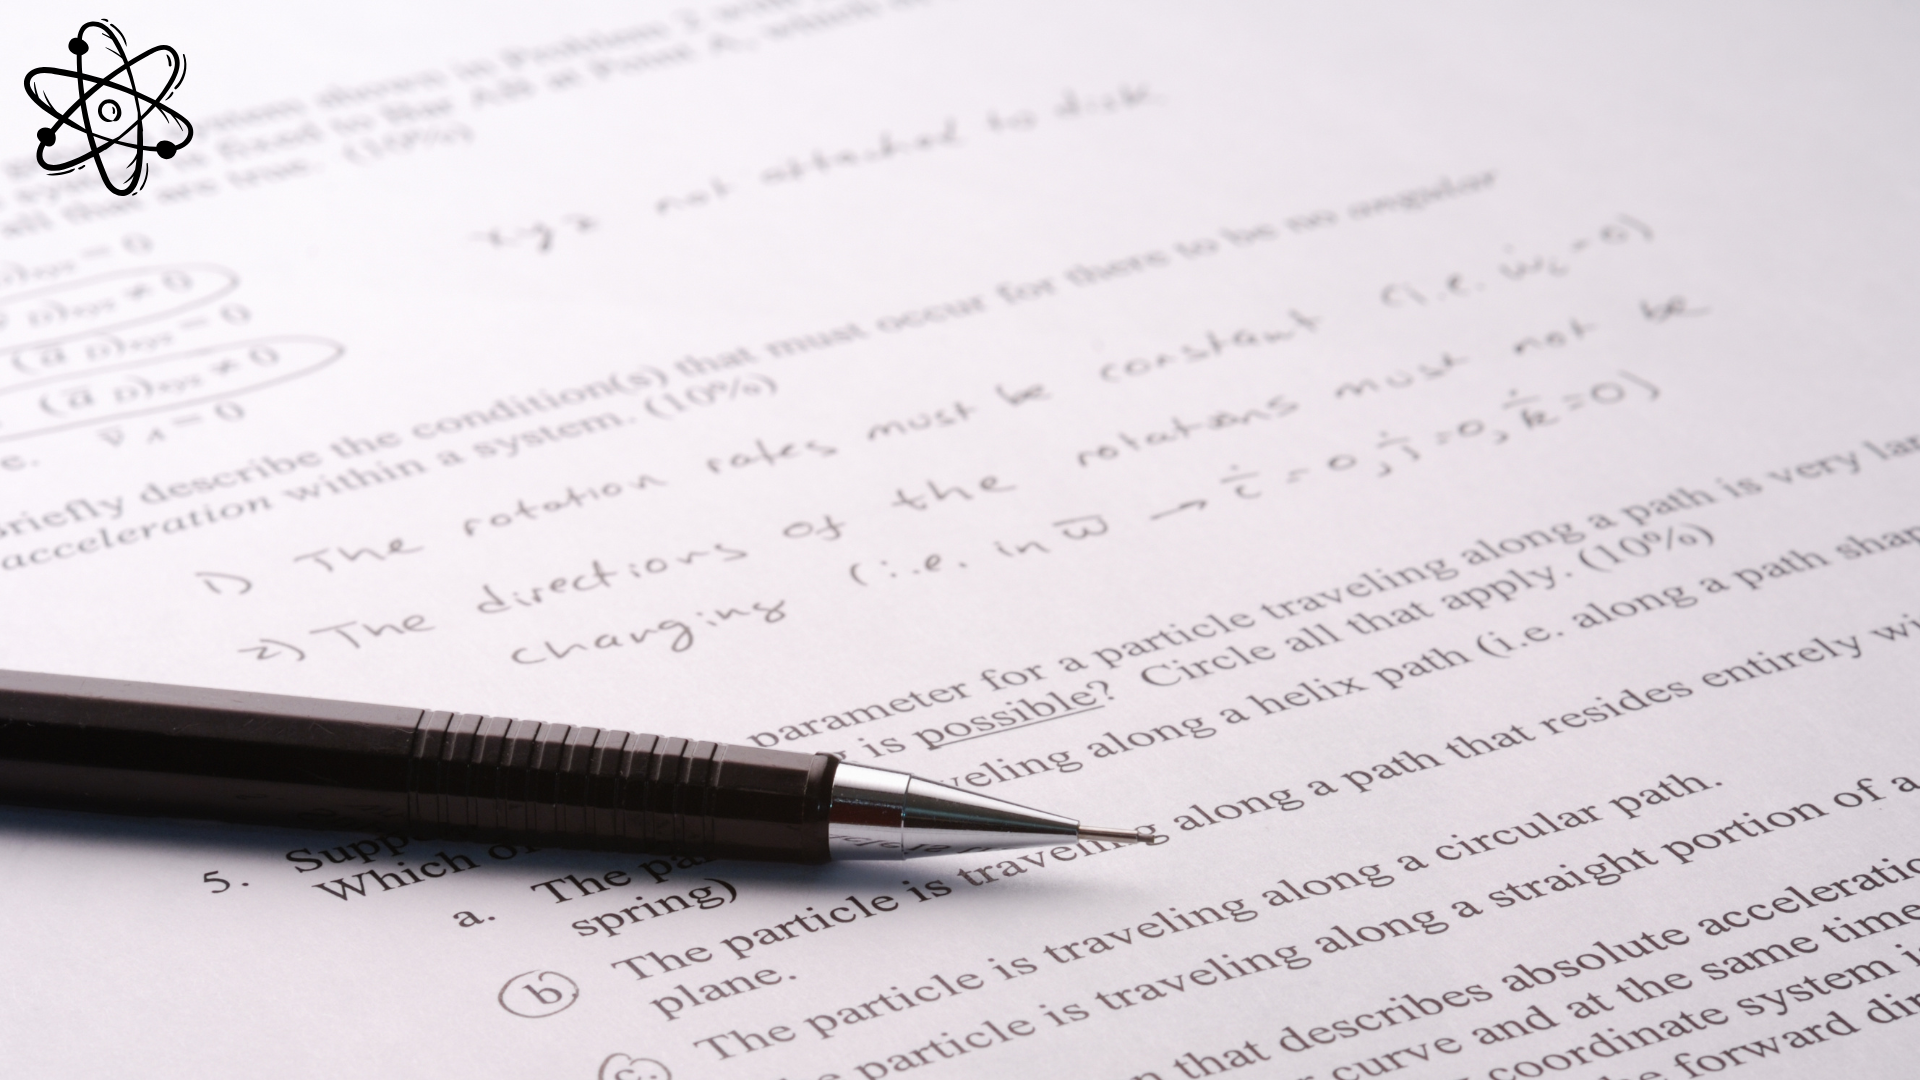 ystem shown in Problem 2 with
fixed to Bar AB at Point A, which
all that are true. (10%)
xyz not attached to disk
= 0
D)xyz ≠ 0
(a D)xyz = 0
(a D)xyz ≠ 0
e. v A = 0
riefly describe the condition(s) that must occur for there to be no angular
acceleration within a system. (10%)
1) The rotation rates must be constant (i.e. ẇi = 0)
2) The directions of the rotations must not be
changing (i.e. in ω̄ → i̇ = 0, j̇ = 0, k̇ = 0)
5. Supp parameter for a particle traveling along a path is very lar
Which o is possible? Circle all that apply. (10%)
a. The pa veling along a helix path (i.e. along a path shap
spring)
b. The particle is traveling along a path that resides entirely wi
plane.
c. The particle is traveling along a circular path.
e particle is traveling along a straight portion of a
n that describes absolute acceleratio
r curve and at the same time
coordinate system i
e forward dir